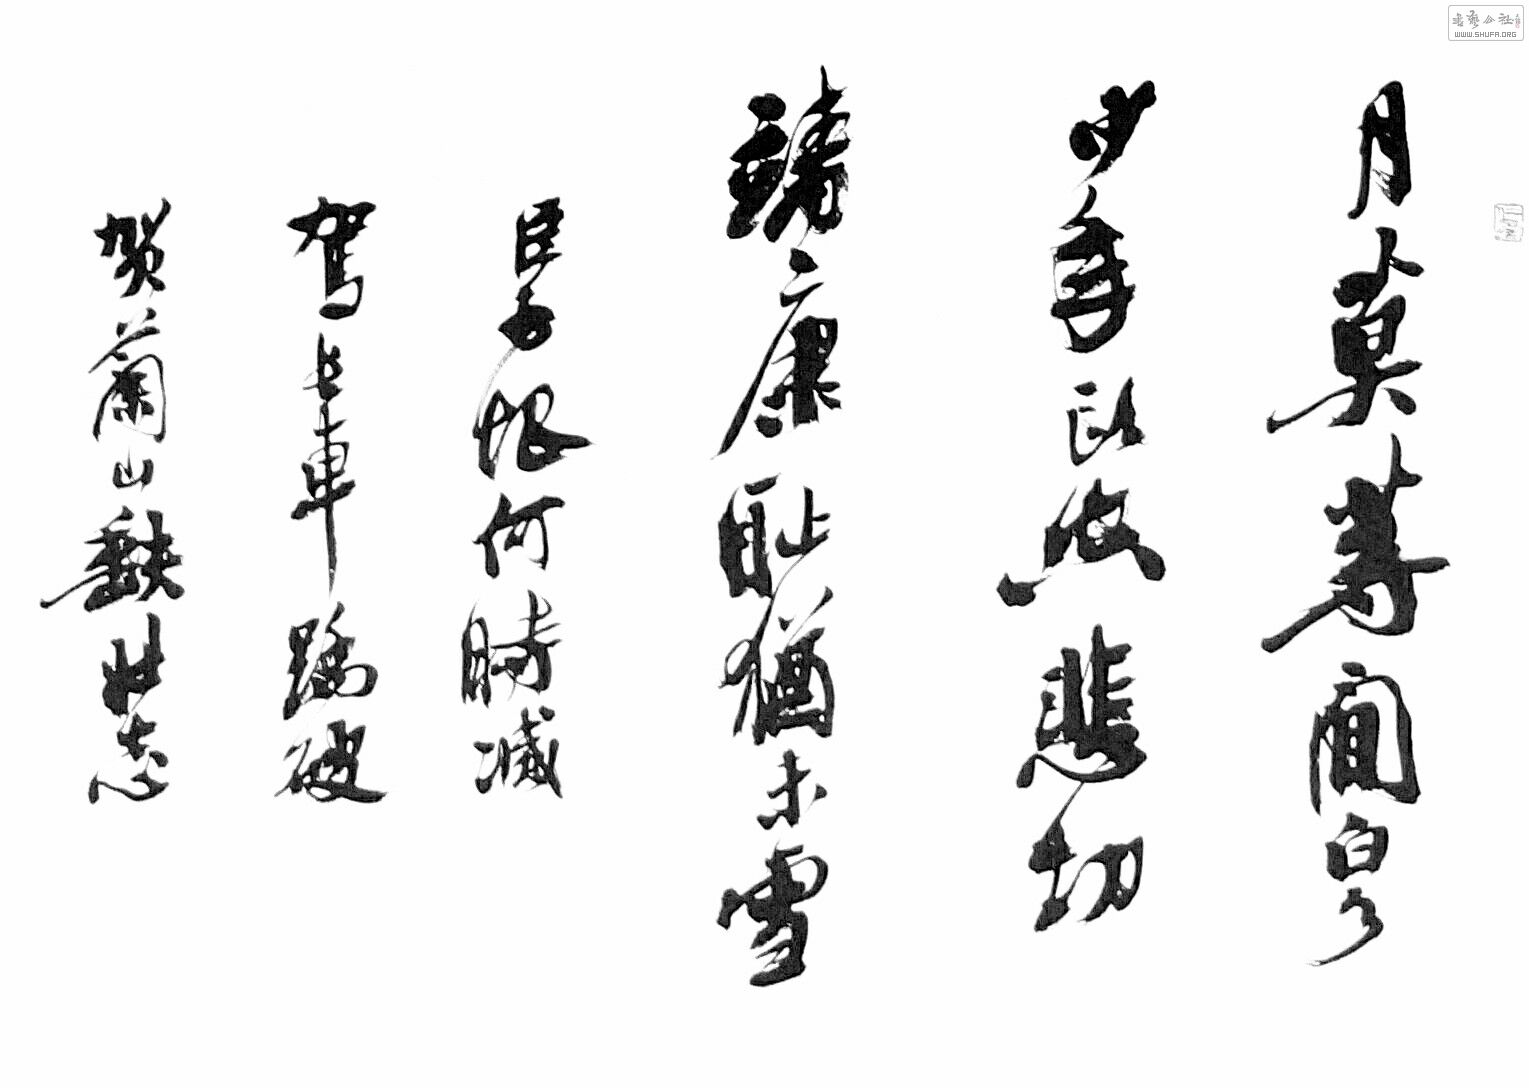 月莫等閒白了
少年頭空悲切
靖康耻猶未雪
臣子恨何時滅
駕長車踏破
賀蘭山缺壯志
書藝公社
WWW.SHUFA.ORG